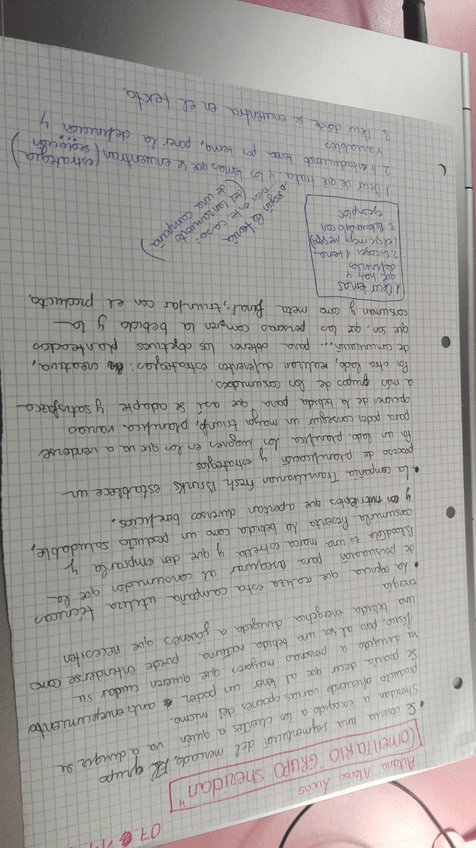 Aitana Alonso Lucas
COMENTARIO "GRUPO SHERIDAN"
• Se observa una segmentación del mercado, el grupo
Sheridan ha escogido a los clientes a quién va a dirigirse
producto ofreciendo varias opciones del mismo.
Se podría decir que al tener un poder anti envejecimiento
va dirigida a personas mayores que quieren cuidar su
físico, pero al ser una bebida natural puede entenderse como
una bebida energética dirigida a jóvenes que necesiten
energía
• La agencia que realiza esta campaña utiliza técnicas
de persuasión para asegurar al consumidor que la
es una marca estrella y que den la compran y
consumirla. Presenta la bebida como un producto saludable,
y con nutrientes que aportan diversos beneficios.
• La compañía Transilvanian Fresh Drinks establece un
proceso de planificación y estrategias
Por un lado, planifica los lugares en los que va a venderse
para poder conseguir un mayor triunfo, planifica varias
opciones de la bebida para que así se adapte y satisfaga
a más grupos de los consumidores.
Por otro lado, realizan diferentes estrategias: creativa,
de comunicación... para obtener los objetivos planteados
que son, que las personas compren la bebida y la
consuman y como meta final, triunfar con el producto.
1. Decir temas
que hay y
definirlos
2. Escoger 1 tema
3. Relacionarlo con
ejemplos
según la teoría
de una campaña)
1. Decir de que trata y los temas que se encuentran (estrategia
2. Ir introduciendo cada tema, poner la definición y
variables
3. Decir donde se encuentra en el texto.